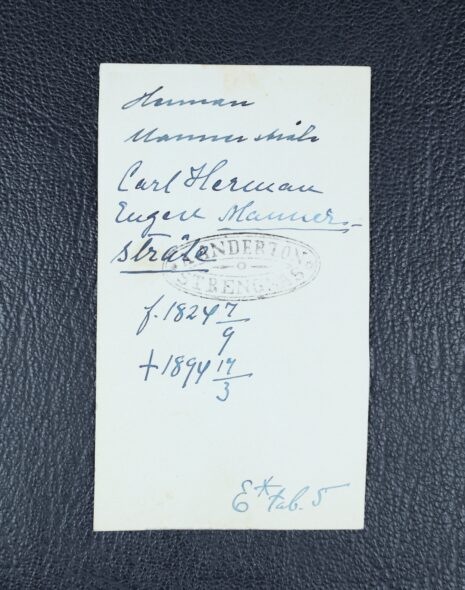 Herman
Mannerstråle
Carl Herman
Eugen Manner-
stråle
SANDERTON
STRENGNÄS
f. 1824 7/9
+ 1894 17/3
E* tab. 5